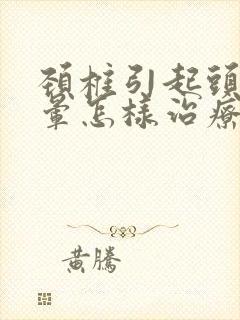 頚椎引起頭
暈怎樣治療
黃騰